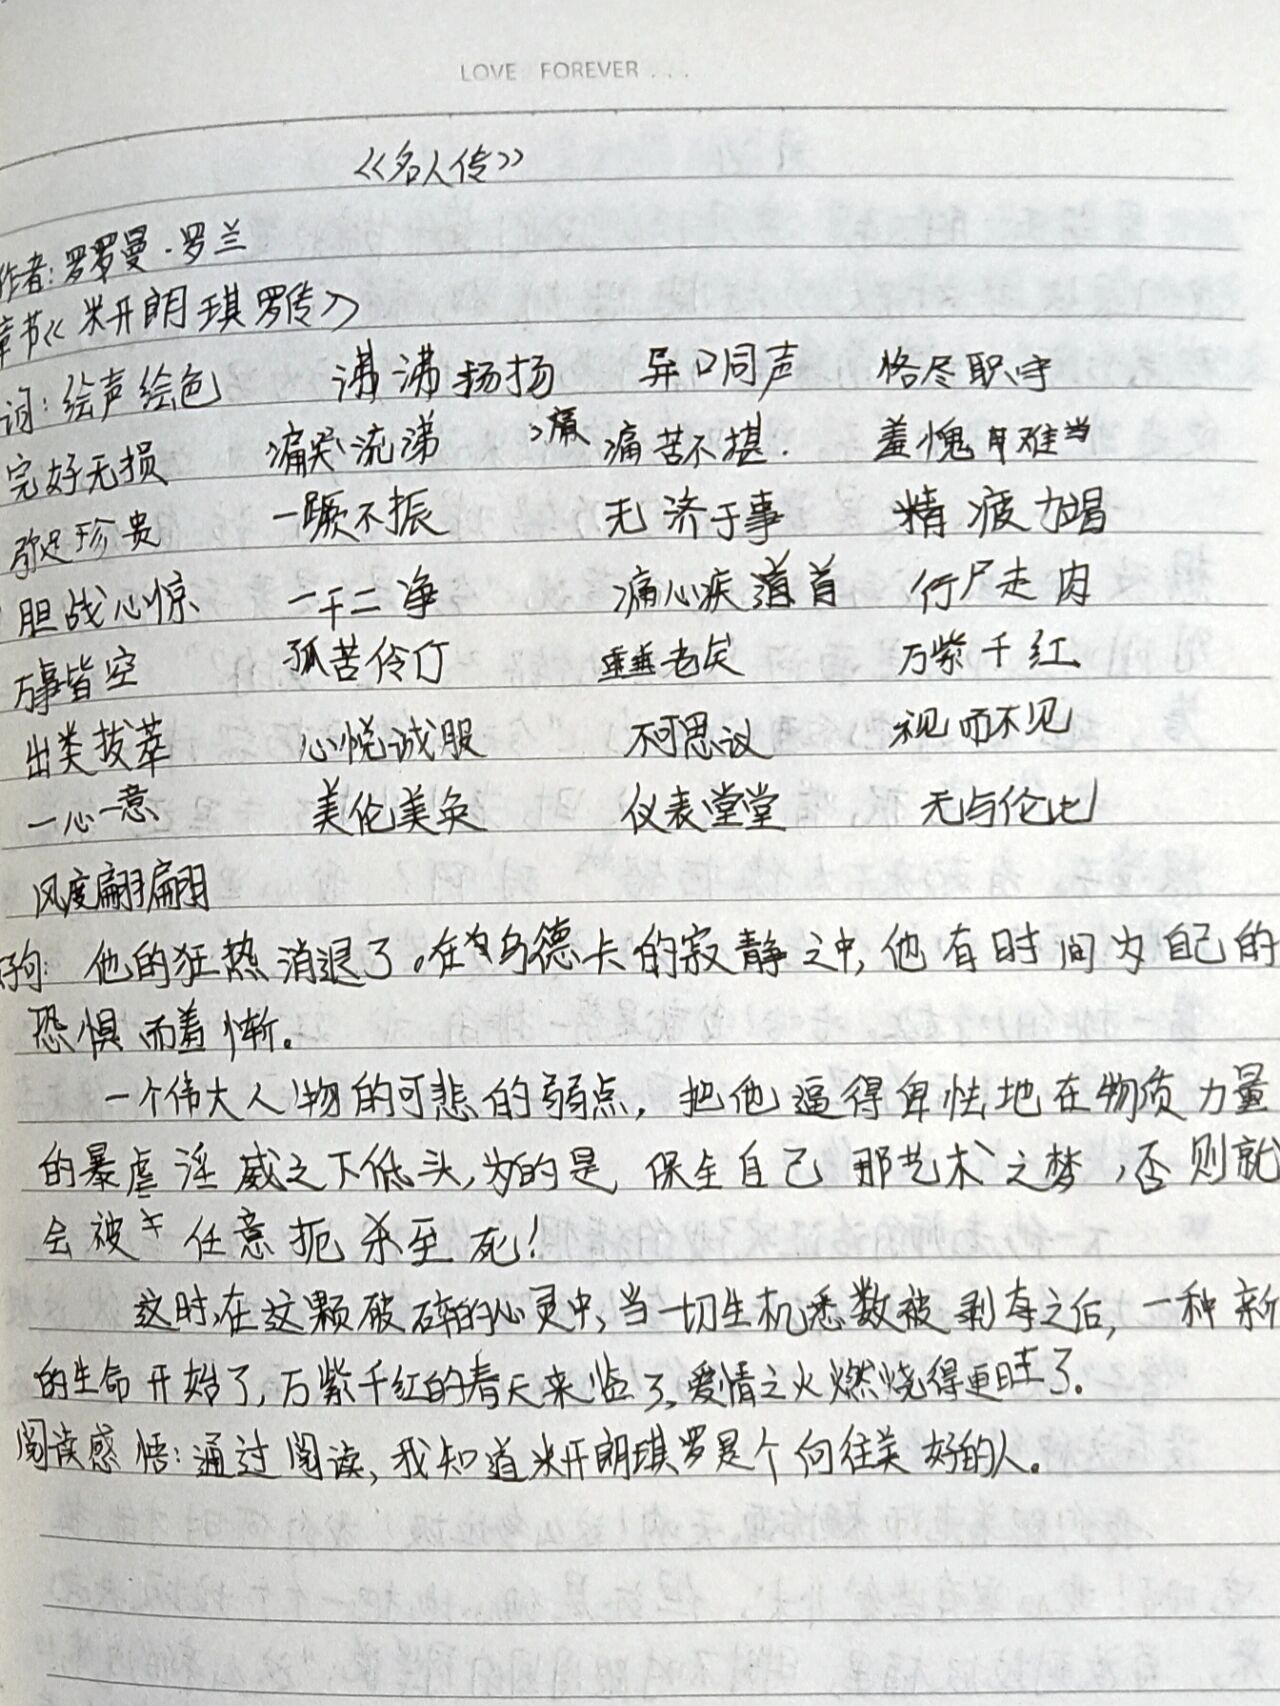 LOVE FOREVER...
《名人传》
作者:罗曼·罗兰
章节《米开朗琪罗传》
词:绘声绘色 沸沸扬扬 异口同声 恪尽职守
完好无损 痛哭流涕 痛苦不堪. 羞愧难当
弥足珍贵 一蹶不振 无济于事 精疲力竭
胆战心惊 一干二净 痛心疾首 行尸走肉
万事皆空 孤苦伶仃 垂垂老矣 万紫千红
出类拔萃 心悦诚服 不可思议 视而不见
一心一意 美伦美奂 仪表堂堂 无与伦比
风度翩翩
好句: 他的狂热消退了。在乌德卡的寂静之中,他有时间为自己的
恐惧而羞惭。
一个伟大人物的可悲的弱点,把他逼得卑怯地在物质力量
的暴虐淫威之下低头,为的是保全自己那艺术之梦,否则就
会被任意扼杀至死!
这时,在这颗破碎的心灵中,当一切生机悉数被剥夺之后,一种新
的生命开始了,万紫千红的春天来临了,爱情之火燃烧得更旺了.
阅读感悟:通过阅读,我知道米开朗琪罗是个向往美好的人。